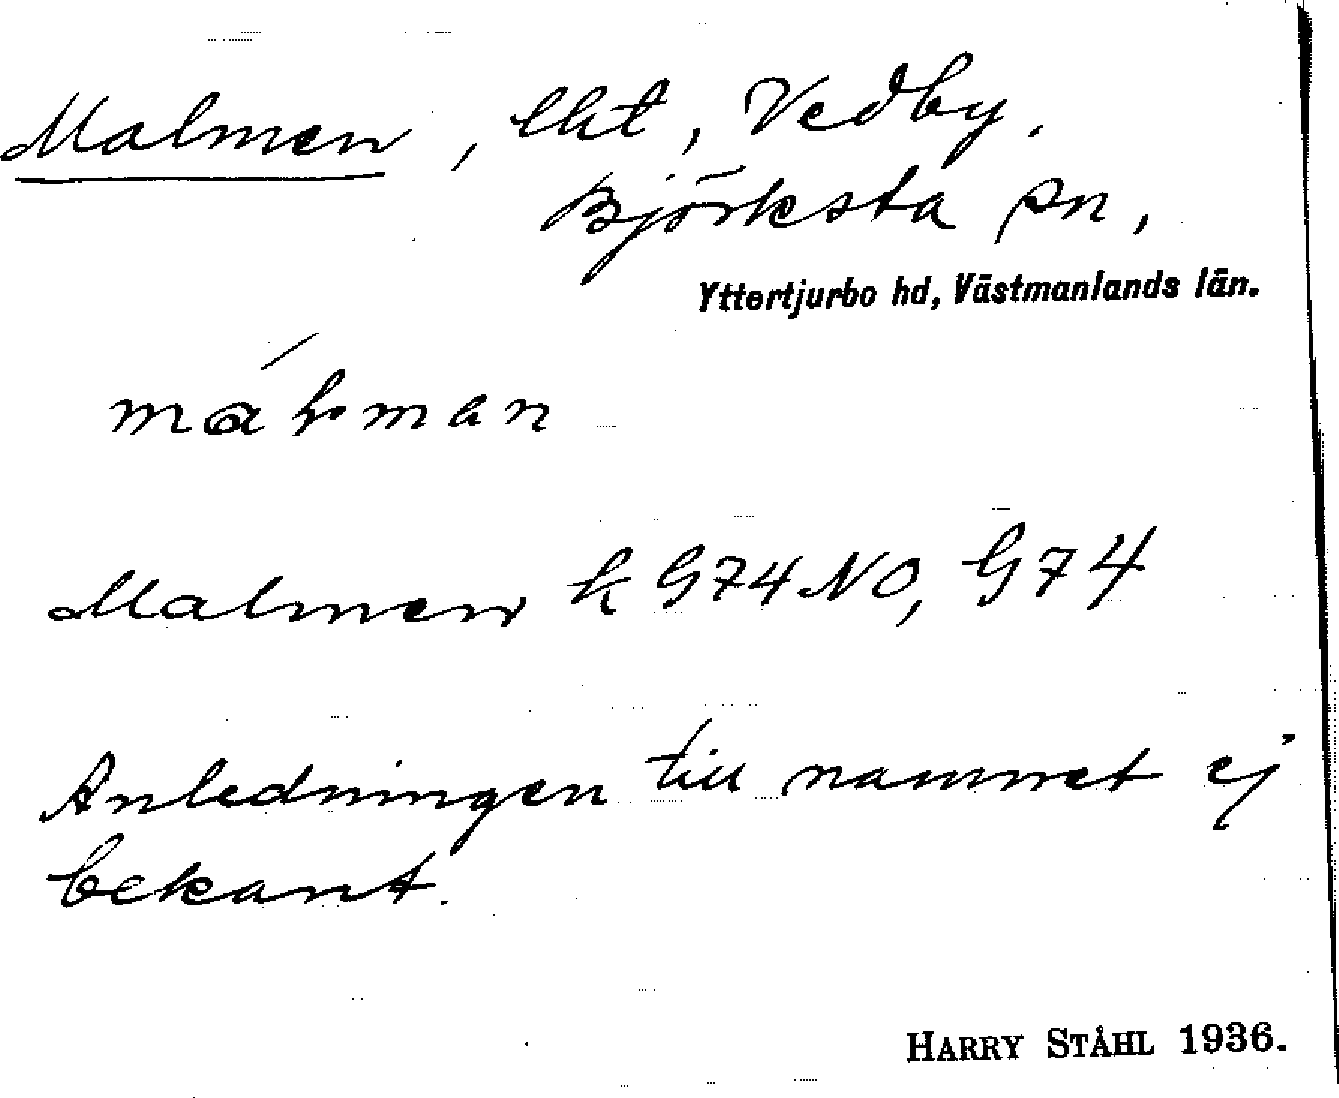 Malmen, lht, Vedby,
Björksta sn,
Yttertjurbo hd, Västmanlands län.
Malmen k G74NO, G74
Anledningen till namnet ej
bekant.
HARRY STÅHL 1936.